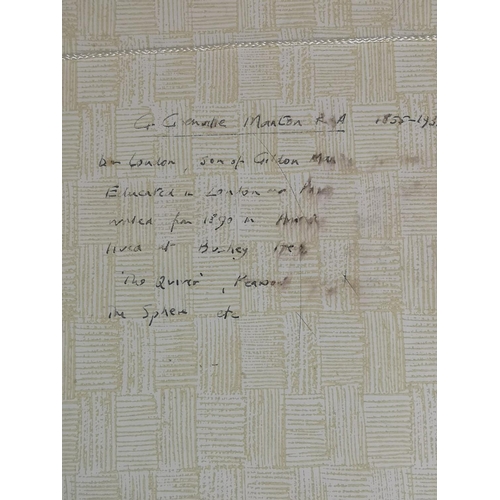 G. Grenville Manton R A 1855-193
b in London, son of Gildon Man
Educated in London and
from 1890 in
lived at Bushey
"The Quiver", Pearson
The Sphere etc